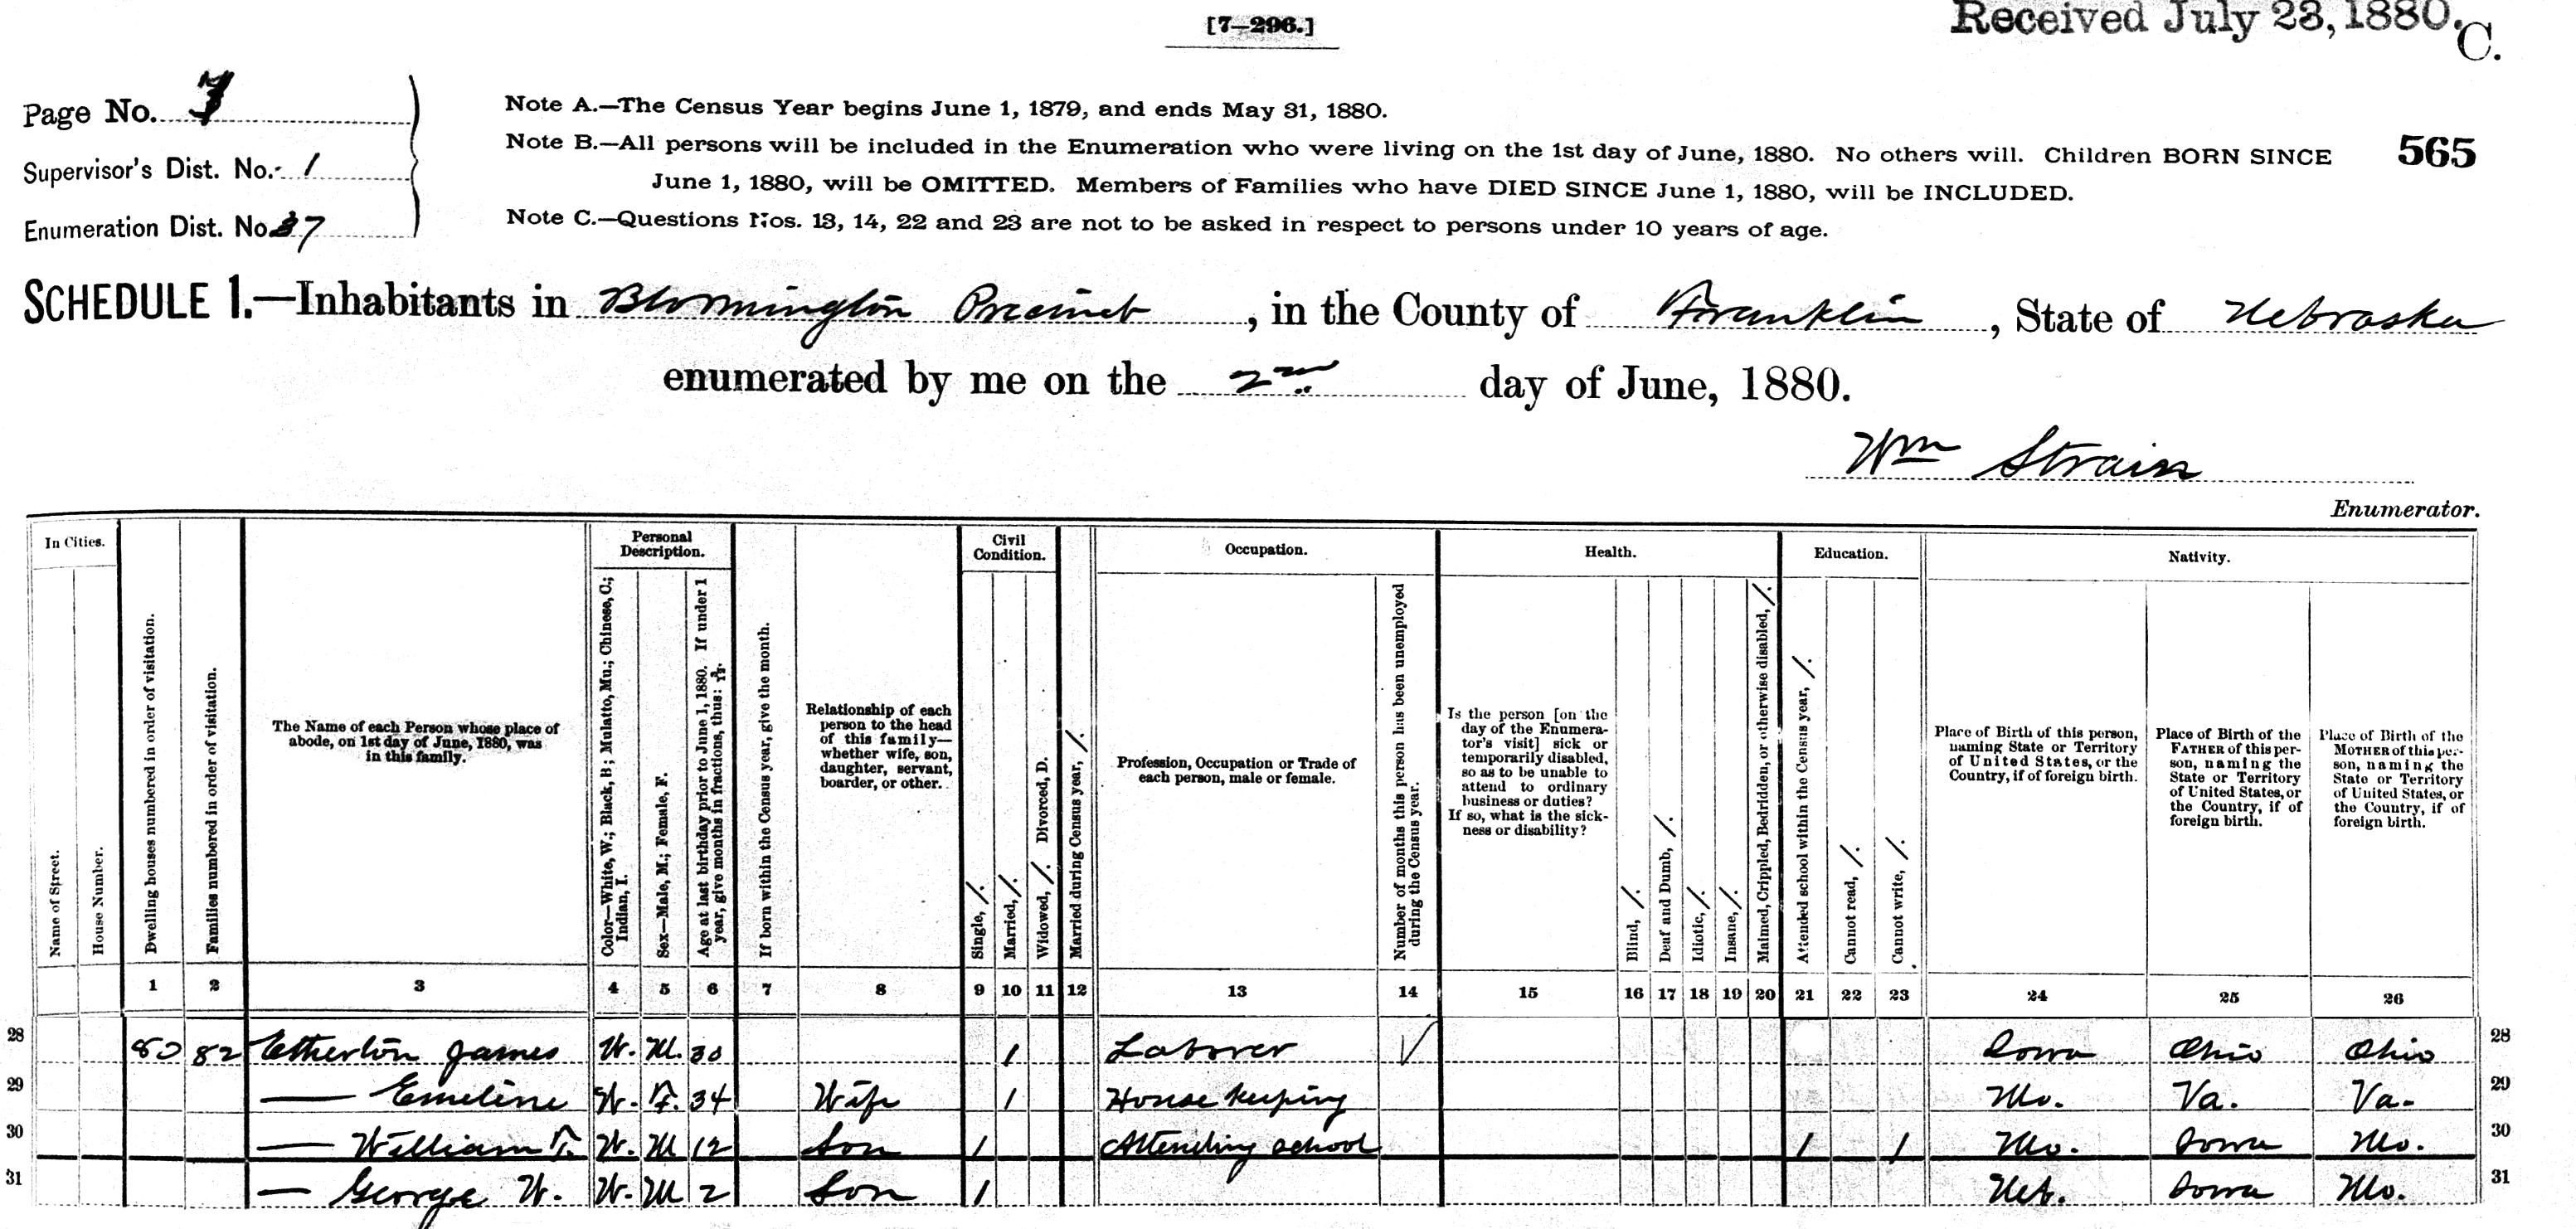 [7–296.]
Received July 23, 1880.
C.
Page No. 7
Supervisor's Dist. No. 1
Enumeration Dist. No. 37
Note A.—The Census Year begins June 1, 1879, and ends May 31, 1880.
Note B.—All persons will be included in the Enumeration who were living on the 1st day of June, 1880. No others will. Children BORN SINCE
June 1, 1880, will be OMITTED. Members of Families who have DIED SINCE June 1, 1880, will be INCLUDED.
Note C.—Questions Nos. 13, 14, 22 and 23 are not to be asked in respect to persons under 10 years of age.
565
SCHEDULE 1.—Inhabitants in Bloomington Precinct, in the County of Franklin, State of Nebraska
enumerated by me on the 2nd day of June, 1880.
Wm Strain
Enumerator.
In Cities.
Name of Street.
House Number.
Dwelling houses numbered in order of visitation.
Families numbered in order of visitation.
The Name of each Person whose place of
abode, on 1st day of June, 1880, was
in this family.
Personal
Description.
Color—White, W.; Black, B; Mulatto, Mu.; Chinese, C.;
Indian, I.
Sex—Male, M.; Female, F.
Age at last birthday prior to June 1, 1880. If under 1
year, give months in fractions, thus: 3/12.
If born within the Census year, give the month.
Relationship of each
person to the head
of this family—
whether wife, son,
daughter, servant,
boarder, or other.
Civil
Condition.
Single, /.
Married, /.
Widowed, /. Divorced, D.
Married during Census year, /.
Occupation.
Profession, Occupation or Trade of
each person, male or female.
Number of months this person has been unemployed
during the Census year.
Health.
Is the person [on the
day of the Enumera-
tor's visit] sick or
temporarily disabled,
so as to be unable to
attend to ordinary
business or duties?
If so, what is the sick-
ness or disability?
Blind, /.
Deaf and Dumb, /.
Idiotic, /.
Insane, /.
Maimed, Crippled, Bedridden, or otherwise disabled, /.
Education.
Attended school within the Census year, /.
Cannot read, /.
Cannot write, /.
Nativity.
Place of Birth of this person,
naming State or Territory
of United States, or the
Country, if of foreign birth.
Place of Birth of the
FATHER of this per-
son, naming the
State or Territory
of United States, or
the Country, if of
foreign birth.
Place of Birth of the
MOTHER of this per-
son, naming the
State or Territory
of United States, or
the Country, if of
foreign birth.
1 2 3 4 5 6 7 8 9 10 11 12 13 14 15 16 17 18 19 20 21 22 23 24 25 26
28 80 82 Etherton James W. M. 30 / Laborer √ Iowa Ohio Ohio 28
29 — Emeline W. F. 34 Wife / House keeping Mo. Va. Va. 29
30 — William F. W. M 12 Son / Attending school / / Mo. Iowa Mo. 30
31 — George W. W. M 2 Son / Neb. Iowa Mo. 31